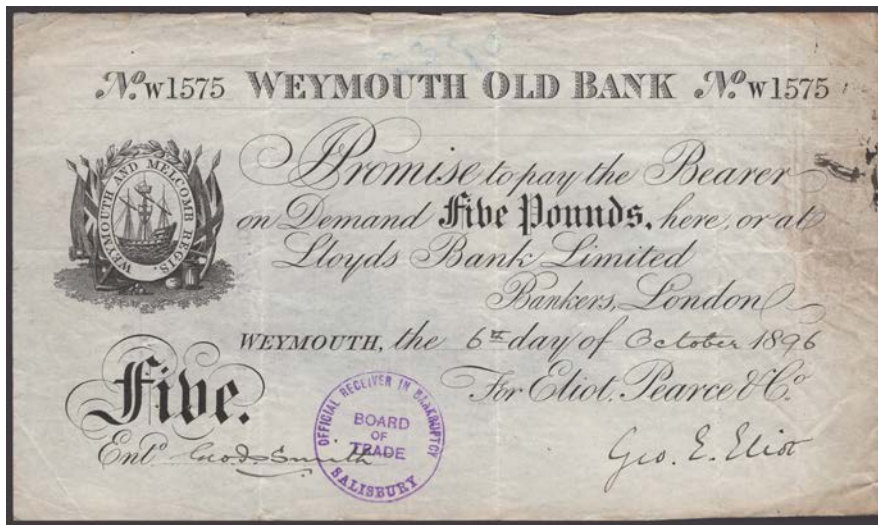 No. W1575 WEYMOUTH OLD BANK No. W1575
WEYMOUTH AND MELCOMB REGIS.
I Promise to pay the Bearer
on Demand Five Pounds, here, or at
Lloyds Bank Limited
Bankers, London
WEYMOUTH, the 6th day of October 1896
For Eliot, Pearce & Co.
Five.
OFFICIAL RECEIVER IN BANKRUPTCY
BOARD
OF
TRADE
SALISBURY
Entd. Smith
Geo. E. Eliot